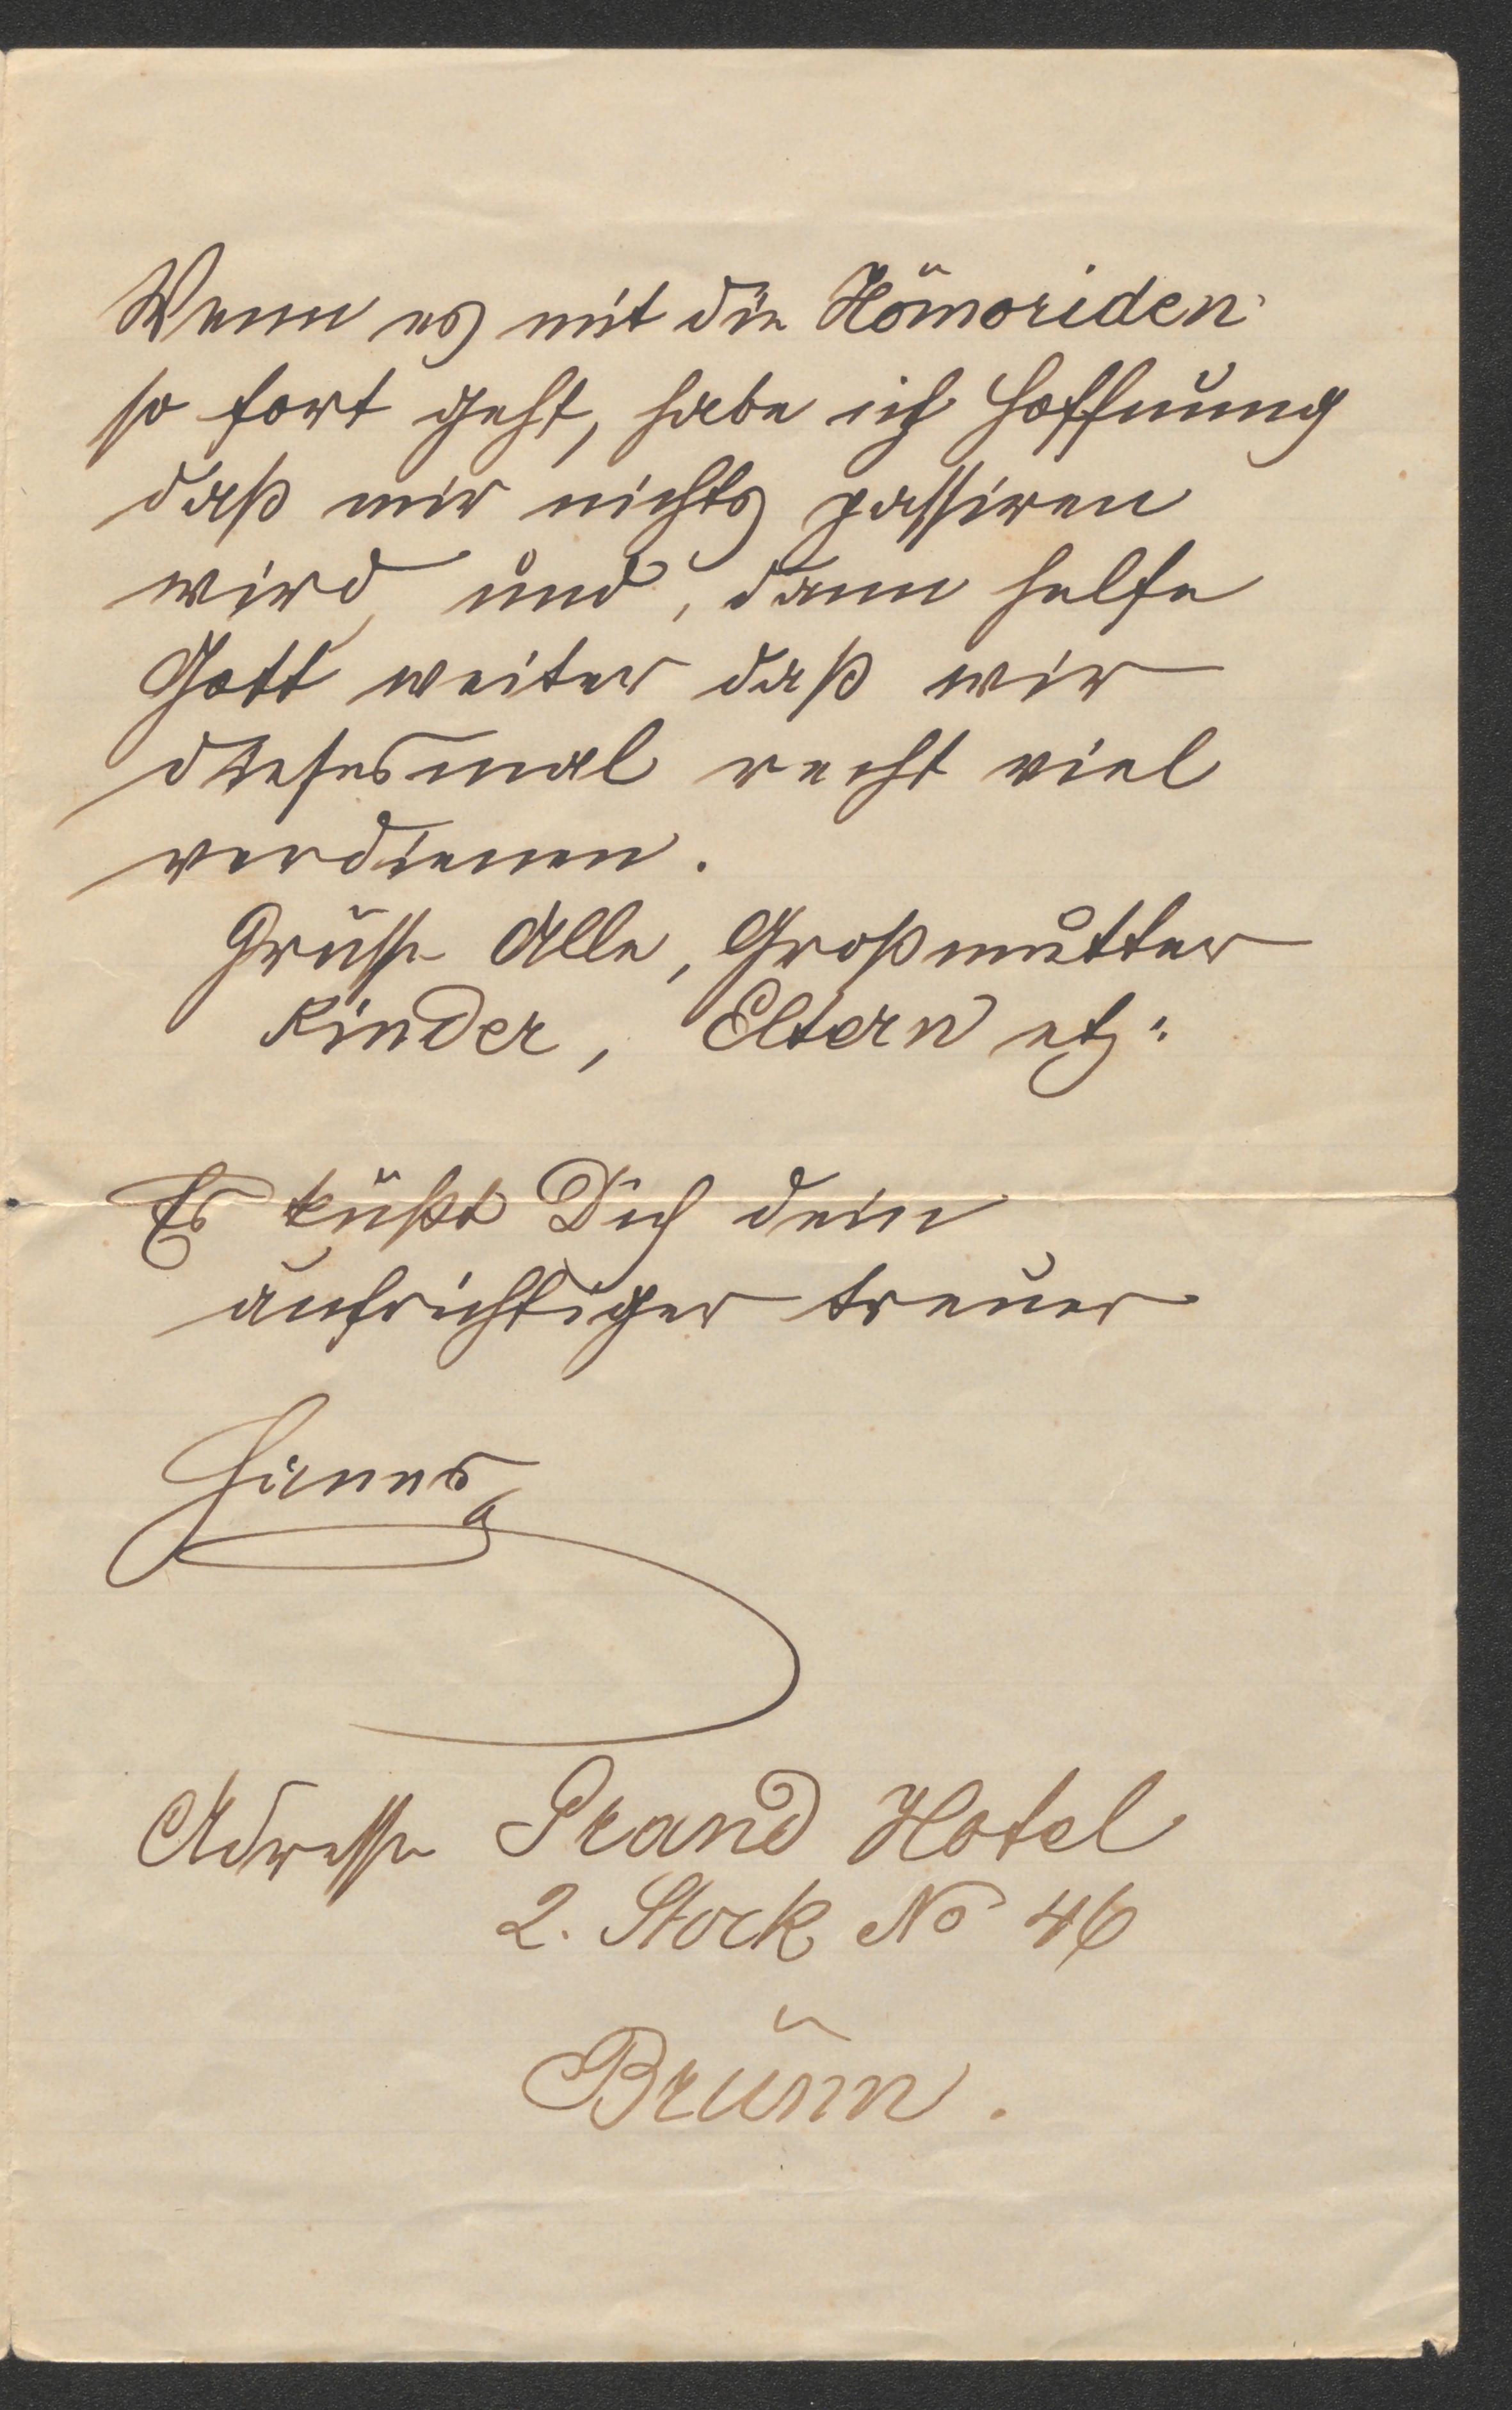 Wenn es mit die Hömoriden
so fort geht, habe ich Hoffnung
daß mir nichts passiren
wird und, dann helfe
Gott weiter daß wir
diesesmal recht viel
verdienen.
Grüsse Alle, Großmutter
Kinder, Eltern etz:
Es küßt Dich dein
aufrichtiger treuer
Hanns
Adresse Grand Hotel
2. Stock No 46
Brünn.